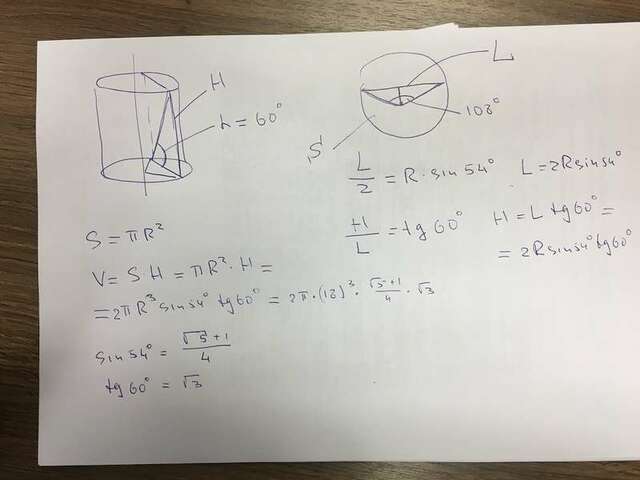 H
α = 60°
L
108°
S
L/2 = R · sin 54° L = 2R sin 54°
H/L = tg 60° H = L tg 60° =
= 2R sin 54° tg 60°
S = πR²
V = S H = πR² · H =
= 2πR³ sin 54° tg 60° = 2π · (18)³ · (√5+1)/4 · √3
sin 54° = (√5+1)/4
tg 60° = √3